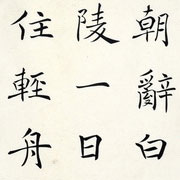 朝辭白
陵一日
住輕舟